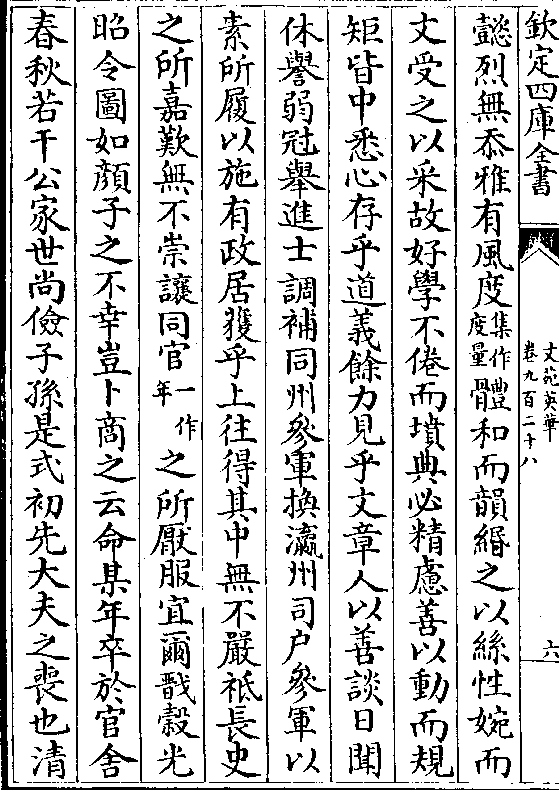 欽定四庫全書
文苑英華
卷九百二十八
六
懿烈無忝雅有風度集作體度量骨和而韻緡之以絲性婉而
文受之以采故好學不倦而墳典必精慮善以動而規
矩皆中悉心存乎道義餘力見乎文章人以善談日聞
休譽弱冠舉進士調補同州參軍換瀛州司户參軍以
素所履以施有政居獲乎上往得其中無不嚴祗長史
之所嘉歎無不崇讓同官一作年之所厭服宜爾戩穀光
昭令圖如顔子之不幸豈卜商之云命某年卒於官舍
春秋若干公家世尚儉子孫是式初先大夫之喪也清